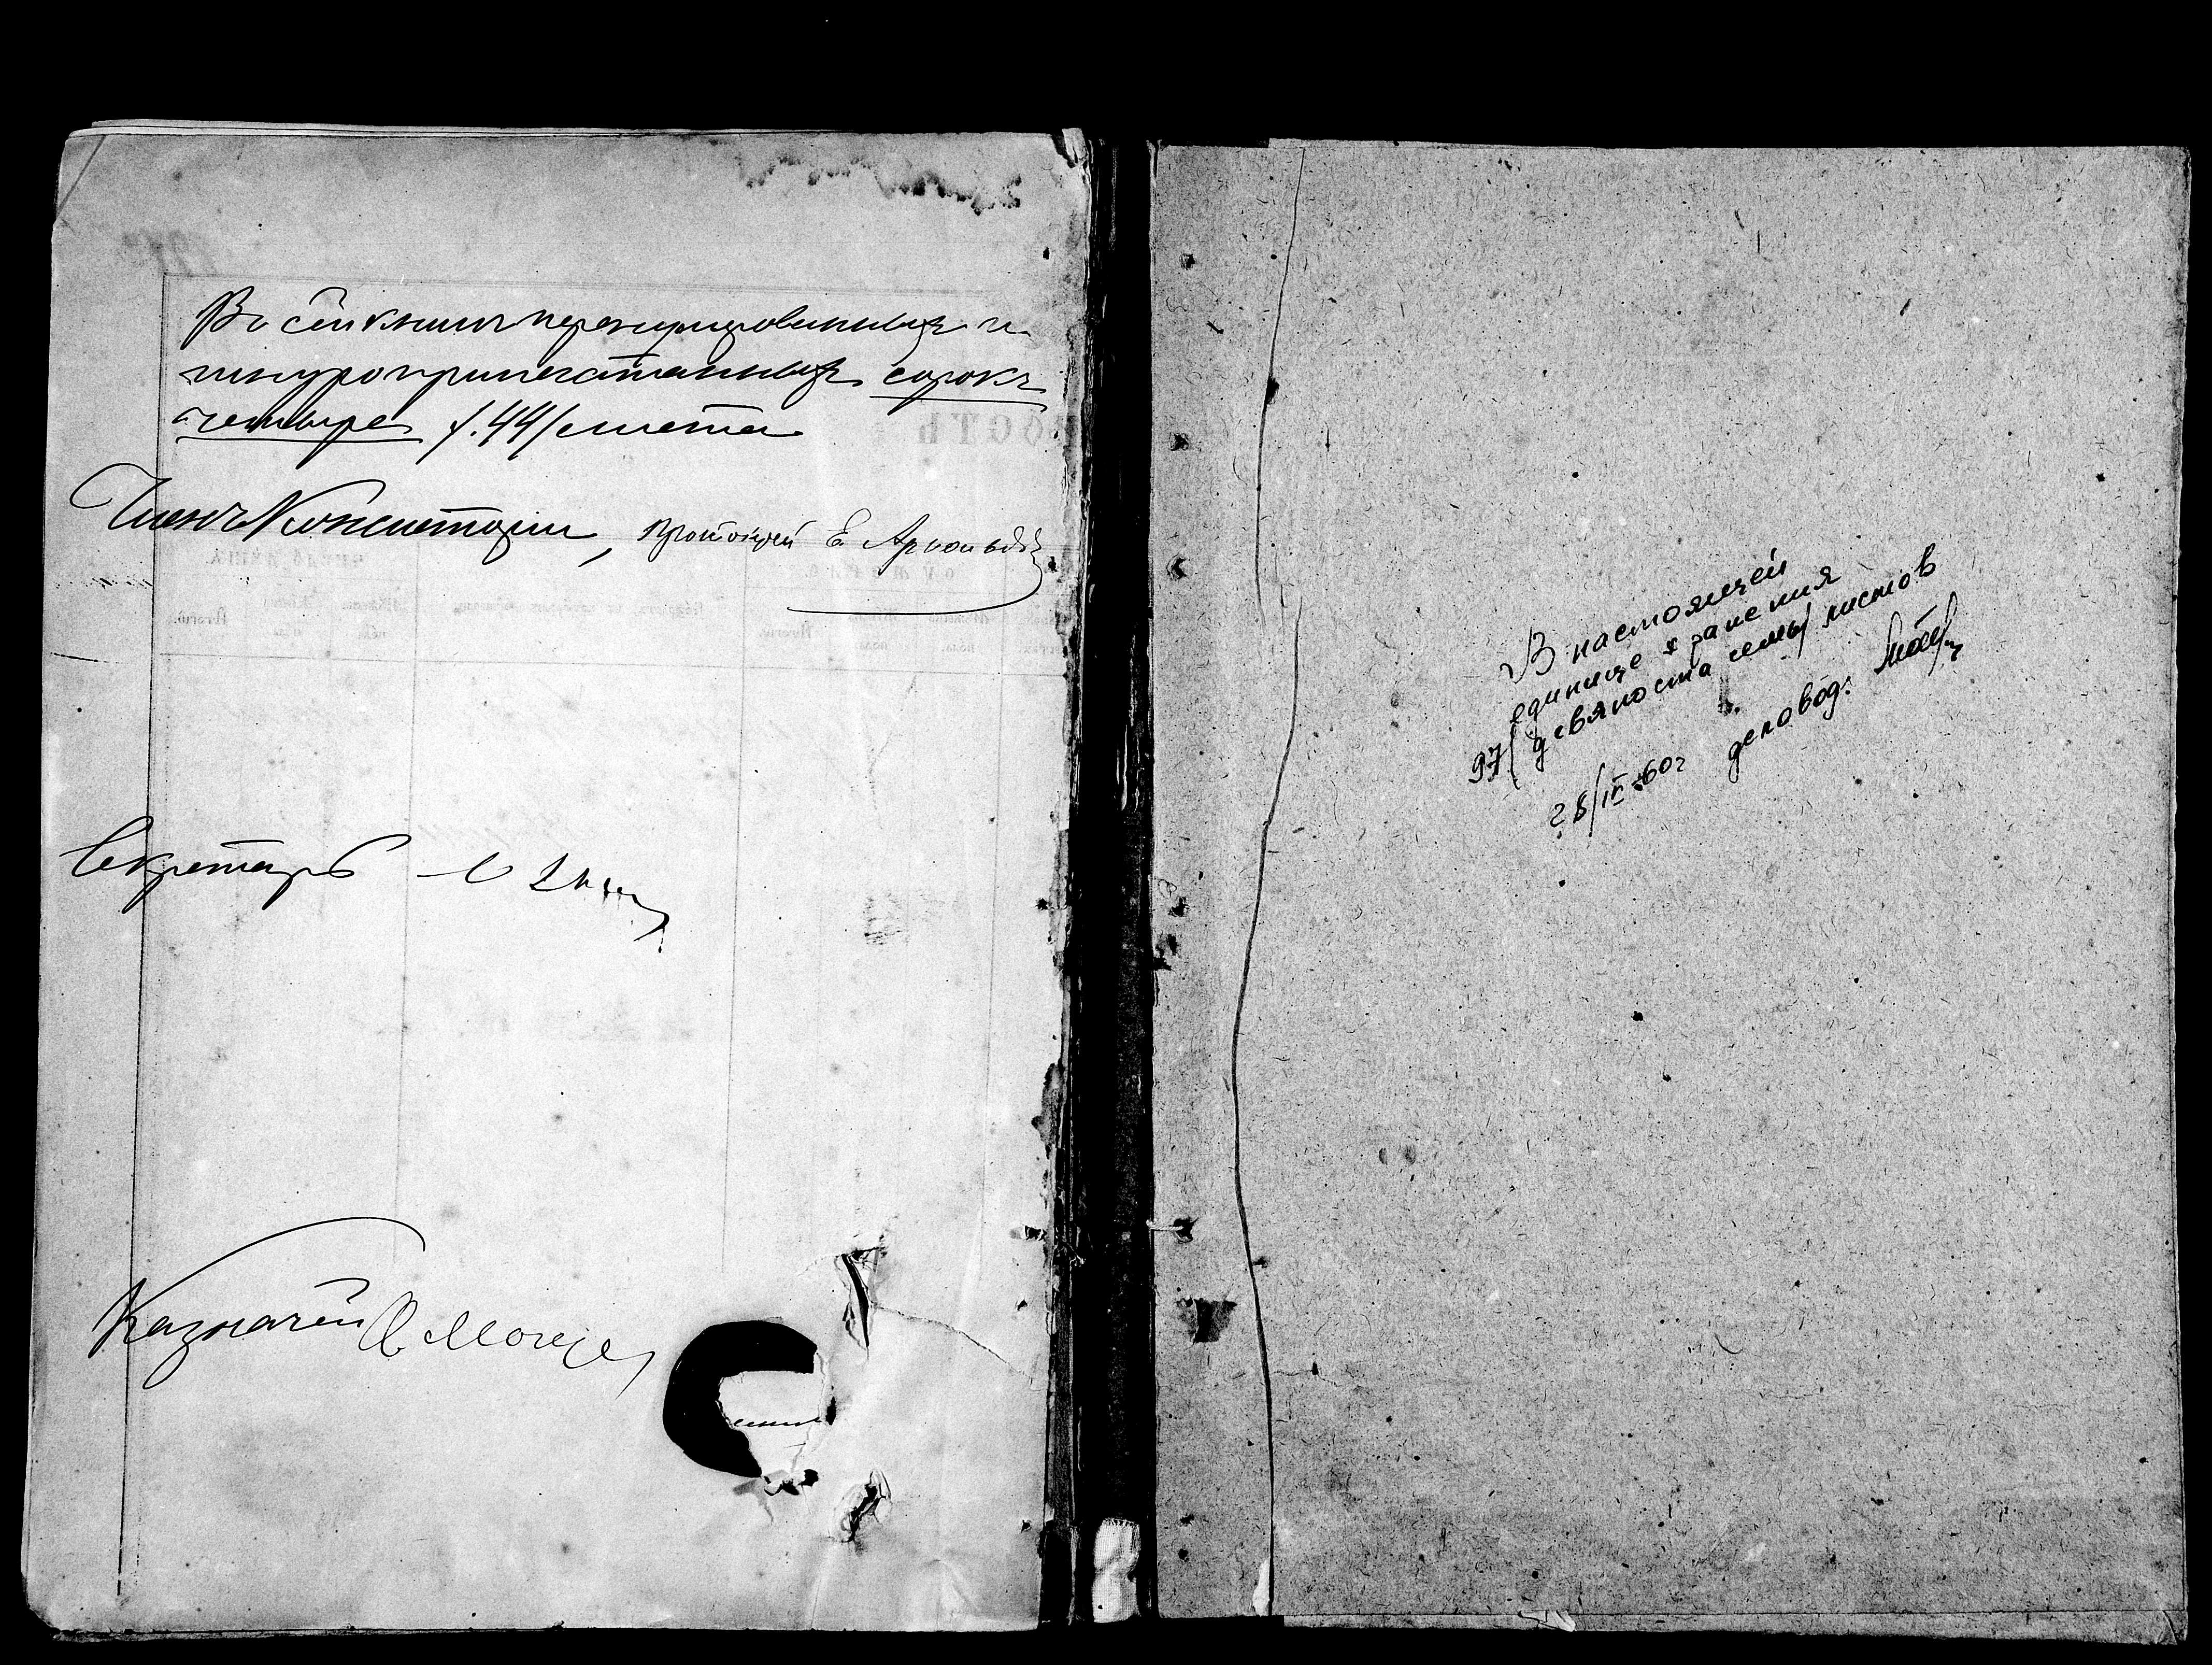 Въ сей книгѣ перенумерованныхъ и
шнуроприпечатанныхъ сорокъ
четыре /.44/ листа
Членъ Консисторіи, Протоіерей Е.
Секретарь
Казначей
В настоящей
единице хранения
97/девяноста семь/ листов
28/IV-60г деловод.